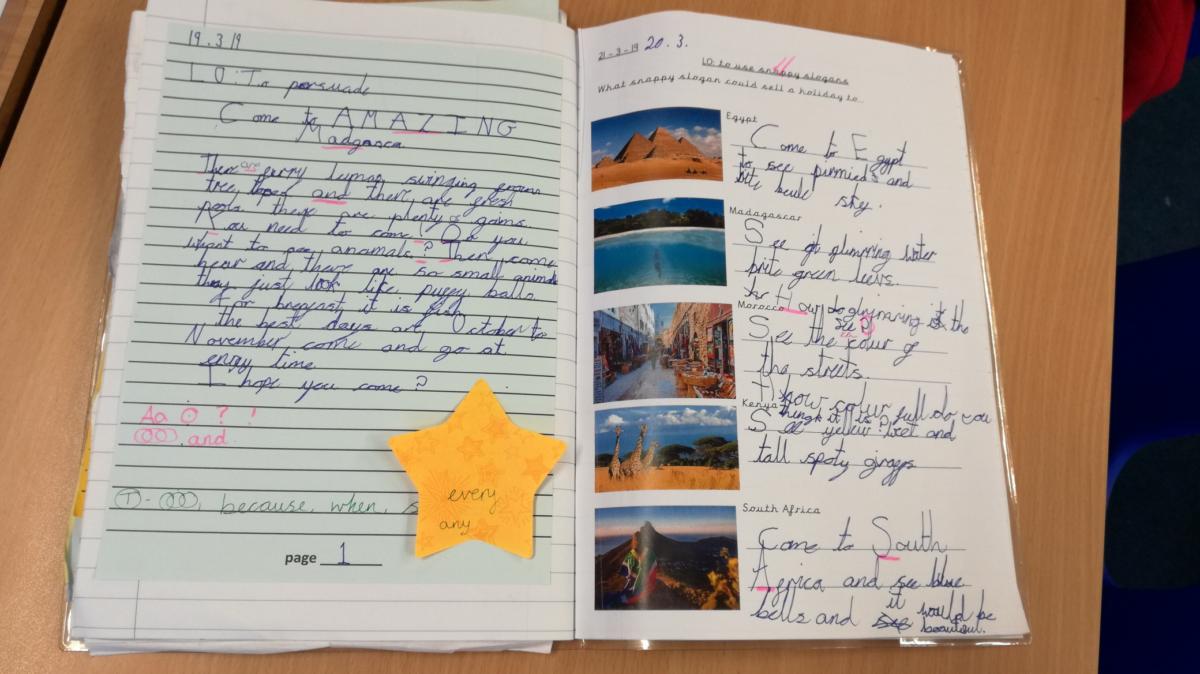 19.3.19
LO: To persuade
Come to AMAZING
Madgasca
There are evrry lemurs swinging
tree, and there are fresh
pools there are plenty of gaims.
You need to come! Do you
want to see anamals? Then come
hear and there are so small animals
they just look like puffy balls.
For breggast it is fish
the best days are October to
November come and go at
enry time
I hope you come?
Aa ⊙ ? !
and
T - because, when,
every
any
page 1
21-3-19 20.3.
LO: to use snappy slogans
What snappy slogan could sell a holiday to...
Egypt
Come to Egypt
to see and
sky.
Madagascar
See glimming water
brite green leevs.
How do glimaring is the
Morocco
see?
See the colur of
the streets.
How colur full do you
Kenya
thingk it is?
See yellow and
tall spoty giraffs
South Africa
Come to South
Africa and see blue
bells and it would be
beautiful.